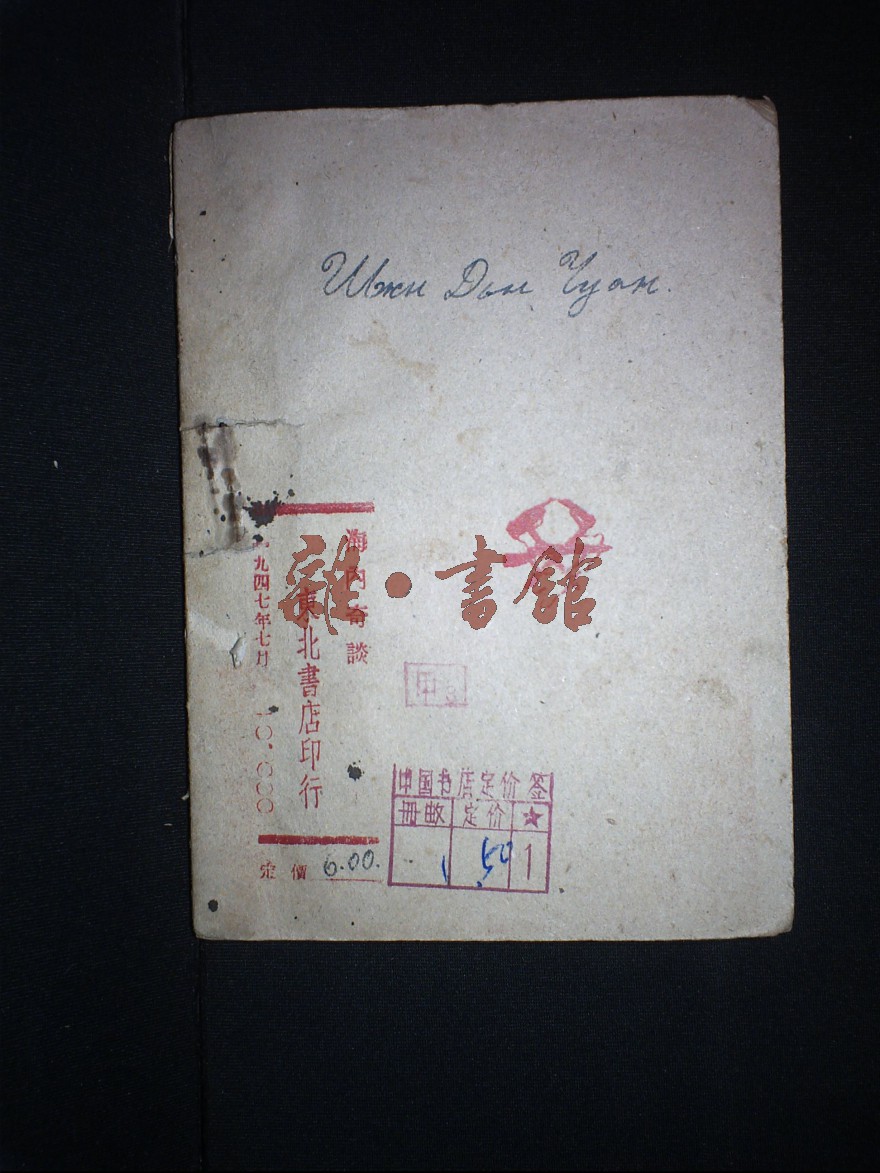 Шэн Дын Чуан.
海內奇談
東北書店印行
一九四七年七月 10.000
定價 6.00.
雜·書館
甲3
中国书店定价签
冊数 定价 ★
1 50 1